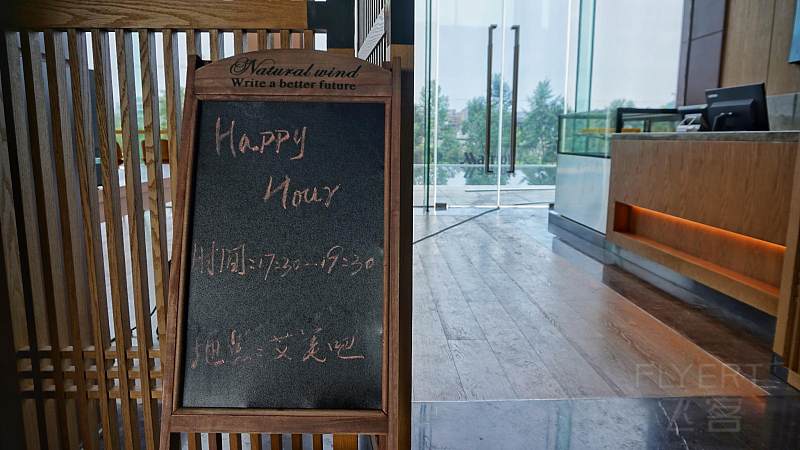 Natural wind
Write a better future
Happy
Hour
时间:17:30--19:30
地点:艾美吧
FLYERT
飞客